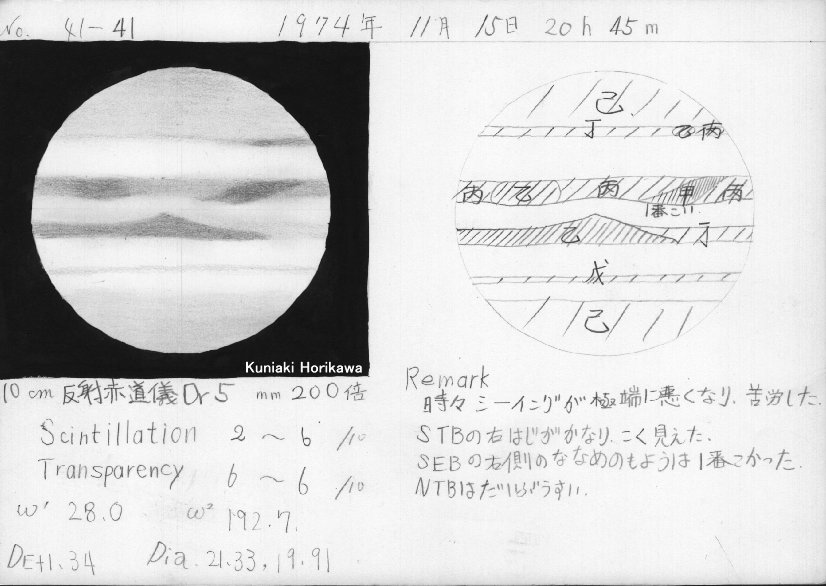 No. 41-41 1974年 11月 15日 20h 45m
己
丁 乙 丙
丙 乙 丙 甲 丙
1番こい.
乙 丁
戊
己
Kuniaki Horikawa
10cm 反射赤道儀 Or5mm 200倍
Scintillation 2~6/10
Transparency 6~6/10
ω¹ 28.0 ω² 192.7.
DE+1.34 Dia. 21.33, 19.91
Remark
時々シーイングが極端に悪くなり、苦労した.
STBの右はじがかなり、こく見えた.
SEBの右側のななめのもようは1番こかった.
NTBはだいぶうすい.